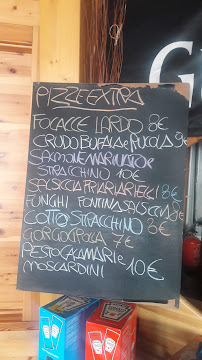 PIZZE EXTRA
FOCACCE LARDO 8€
CRUDO BUFALA e RUCOLA 9€
SALMONE MARINATO e
STRACCHINO 10€
SALSICCIA FRIARIELLI 8€
FUNGHI FONTINA SALSICCIA 8€
COTTO STRACCHINO 8€
GORGO CIPOLLA 7€
PESTO CALAMARI e
MOSCARDINI 10€